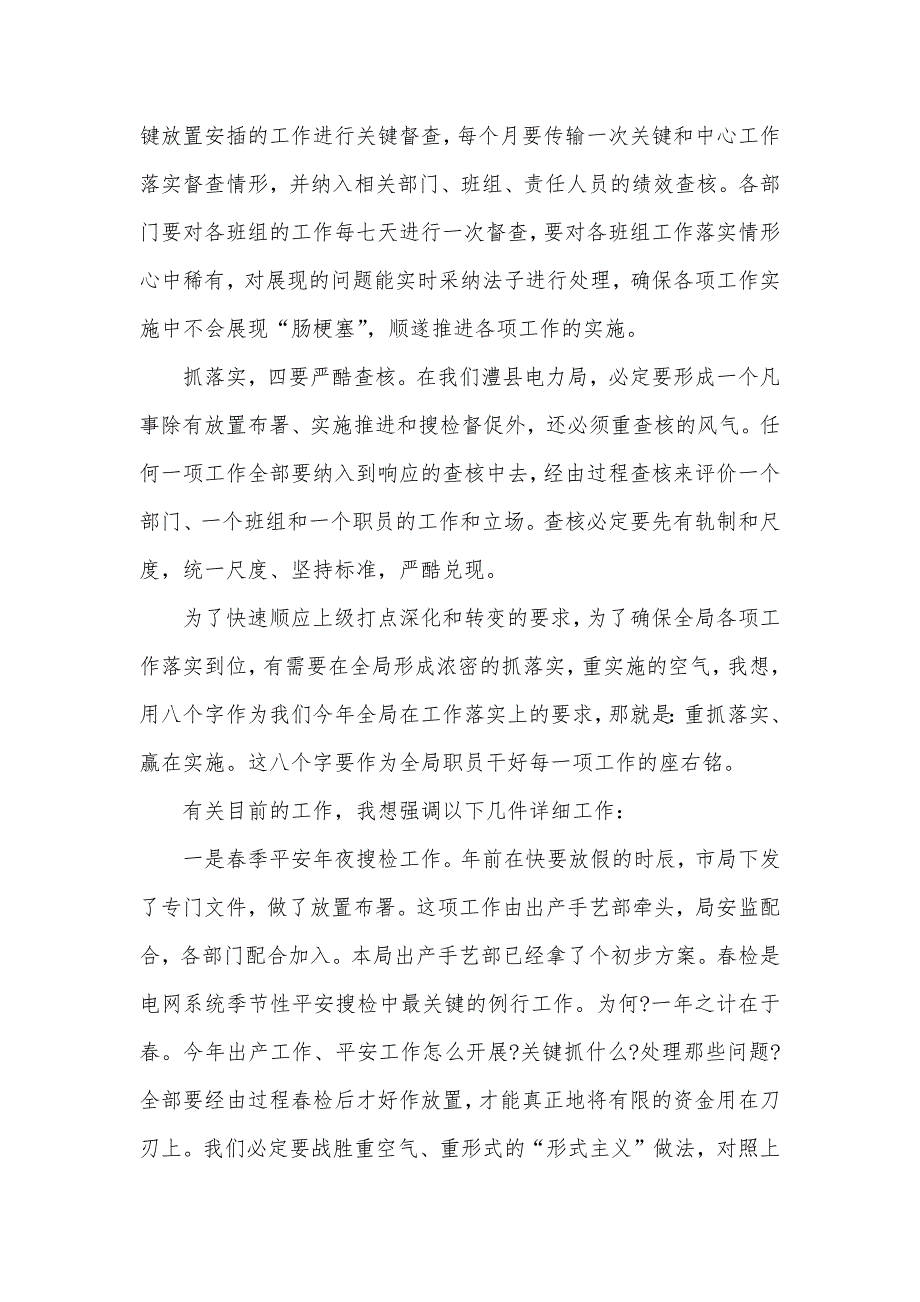 键放置安插的工作进行关键督查，每个月要传输一次关键和中心工作
落实督查情形，并纳入相关部门、班组、责任人员的绩效查核。各部
门要对各班组的工作每七天进行一次督查，要对各班组工作落实情形
心中稀有，对展现的问题能实时采纳法子进行处理，确保各项工作实
施中不会展现“肠梗塞”，顺遂推进各项工作的实施。
抓落实，四要严酷查核。在我们澧县电力局，必定要形成一个凡
事除有放置布署、实施推进和搜检督促外，还必须重查核的风气。任
何一项工作全部要纳入到响应的查核中去，经由过程查核来评价一个
部门、一个班组和一个职员的工作和立场。查核必定要先有轨制和尺
度，统一尺度、坚持标准，严酷兑现。
为了快速顺应上级打点深化和转变的要求，为了确保全局各项工
作落实到位，有需要在全局形成浓密的抓落实，重实施的空气，我想，
用八个字作为我们今年全局在工作落实上的要求，那就是：重抓落实、
赢在实施。这八个字要作为全局职员干好每一项工作的座右铭。
有关目前的工作，我想强调以下几件详细工作：
一是春季平安年夜搜检工作。年前在快要放假的时辰，市局下发
了专门文件，做了放置布署。这项工作由出产手艺部牵头，局安监配
合，各部门配合加入。本局出产手艺部已经拿了个初步方案。春检是
电网系统季节性平安搜检中最关键的例行工作。为何?一年之计在于
春。今年出产工作、平安工作怎么开展?关键抓什么?处理那些问题?
全部要经由过程春检后才好作放置，才能真正地将有限的资金用在刀
刃上。我们必定要战胜重空气、重形式的“形式主义”做法，对照上